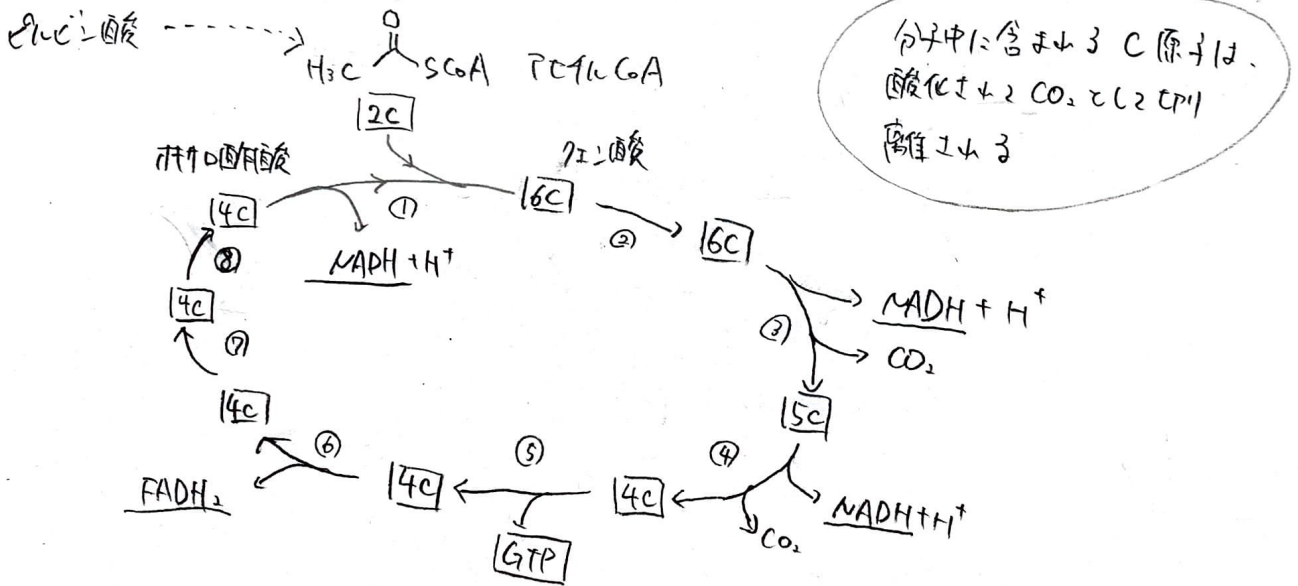 ピルビン酸
O
H₃C SCoA アセチルCoA
2C
分子中に含まれる C原子は、
酸化されて CO₂ として切り
離される
オキサロ酢酸
クエン酸
4C
①
6C
②
6C
NADH + H⁺
⑧
4C
③
NADH + H⁺
CO₂
⑦
5C
4C
⑥
⑤
④
FADH₂
4C
4C
NADH + H⁺
CO₂
GTP